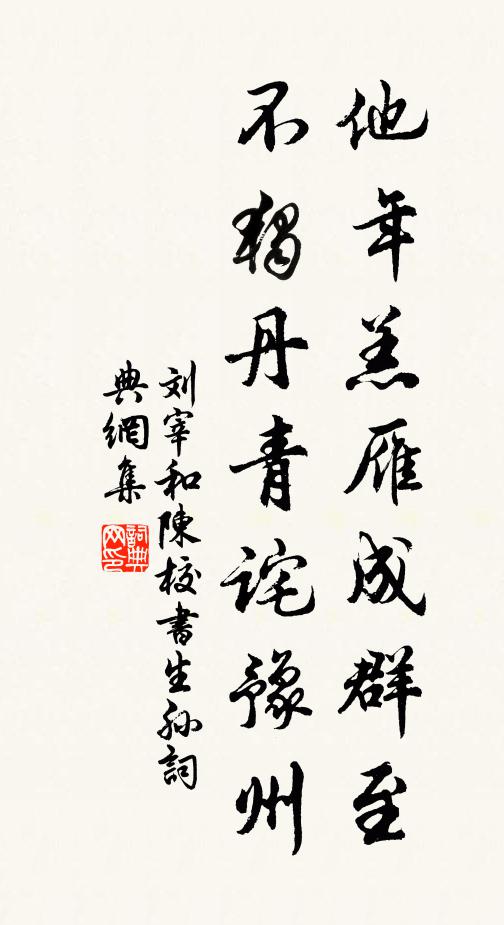 他年羔雁成群至
不独丹青诧豫州
刘宰和陳校書生孙詞
典網集
詞典网印